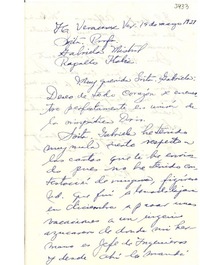 3433
H. Veracruz Ver. 14 de mayo 1951
Srita. Profa.
Gabriela Mistral
Rapallo Italia
Muy querida Srita. Gabriela:
Deseo de todo Corazón se encuentre
perfectamente en unión de
la simpática Doris.
Srita Gabriela he tenido
muy mala suerte respecto a
las cartas que le he enviado
pues no he tenido con
testación de ninguna,
Ud. que fui
en Diciembre a pasar unas
vacaciones a un ingenio
azucarero donde mi her
mano es Jefe de Ingenieros
y desde allí le mandé